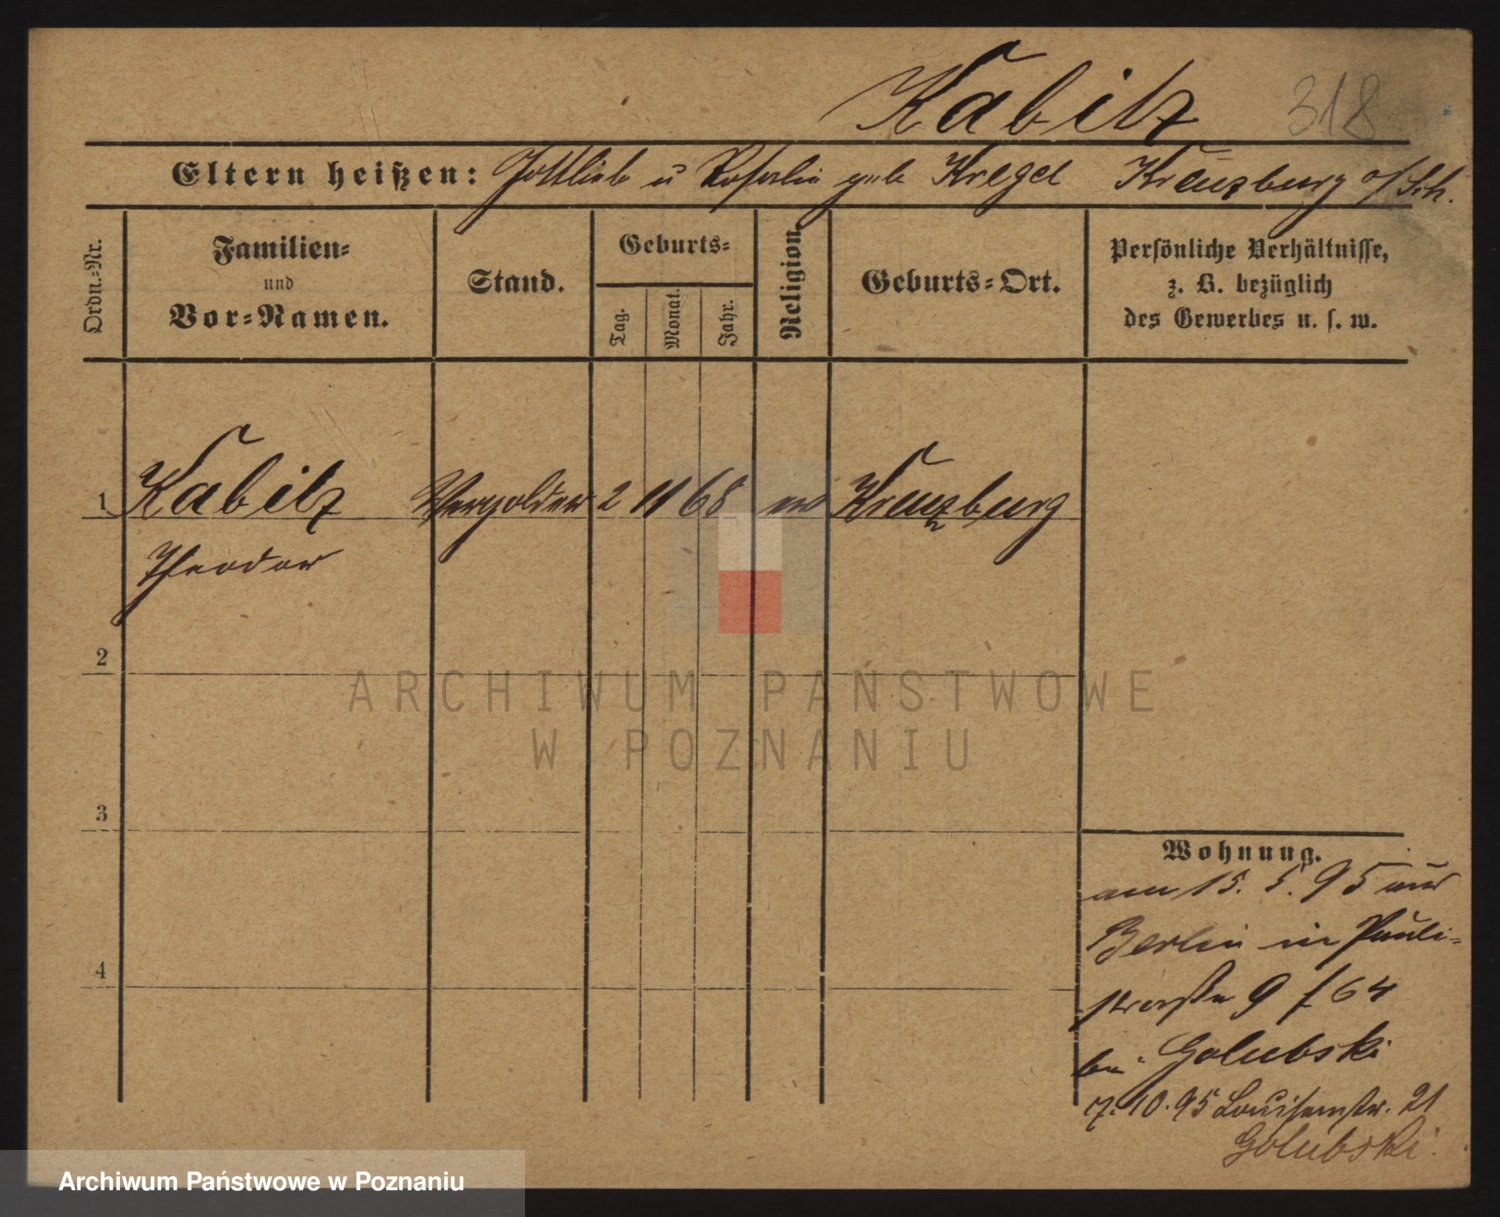 Kabitz 318
Eltern heißen: Gottlieb u Rosalie geb Kregel Kreuzburg o/Sch.
Ordn.-Nr.
Familien-
und
Vor-Namen.
Stand.
Geburts-
Tag.
Monat.
Jahr.
Religion.
Geburts-Ort.
Persönliche Verhältnisse,
z. B. bezüglich
des Gewerbes u. s. w.
1 Kabitz Vergolder 2 11 68 ev Kreuzburg
Theodor
2
3
4
ARCHIWUM PAŃSTWOWE
W POZNANIU
Wohnung.
am 15. 5. 95 aus
Berlin in Pauli-
straße 9 f 64
bei Golubski
7. 10. 95 Louisenstr. 21
Golubski.
Archiwum Państwowe w Poznaniu